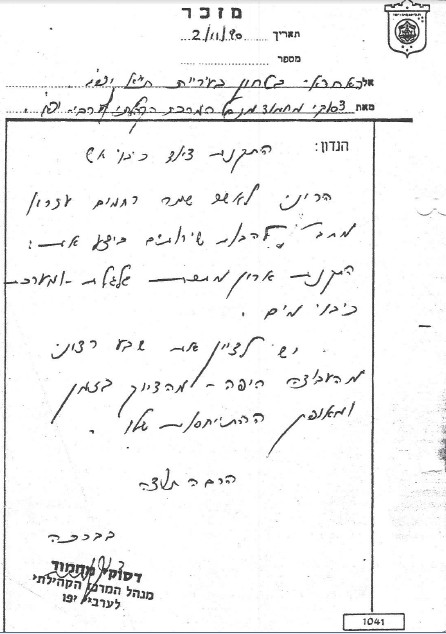 מזכר
תאריך 2/11/90
מספר
אל האחראי בטחון בעיריית ת"א יפו
מאת דסוקי מחמוד מנהל המרכז הקהילתי לערביי יפו.
הנדון: התקנת ציוד כיבוי אש
הריני לאשר שמר רחמים עזרון
מחב' להבות שירותים ביצע את:
התקנת ארון מתכת גלגלת ומערכת
כיבוי מים.
יש לציין את שבע רצוני
מהעבודה היפה - מהדיוק בזמן
ומאופן ההתיחסות שלו.
הרבה תודה
בברכה
דסוקי מחמוד
מנהל המרכז הקהילתי
לערביי יפו
1041